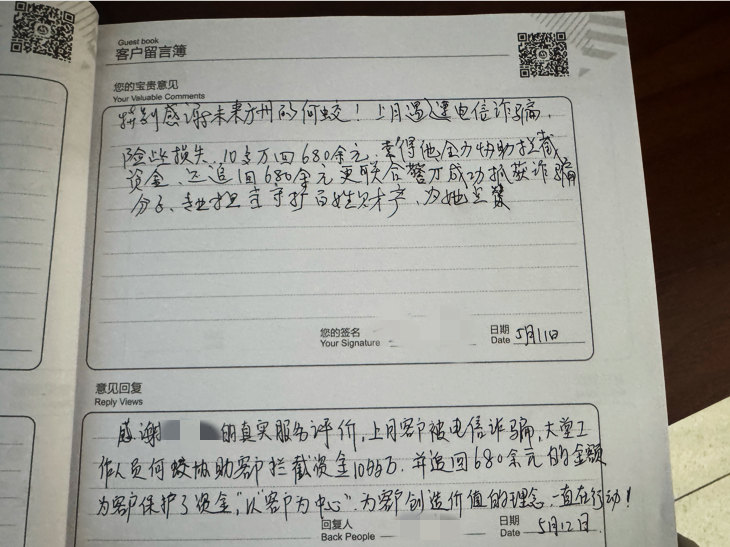 Guest book
客户留言簿
您的宝贵意见
Your Valuable Comments
特别感谢未来方州的何蛟！上月遇遭电信诈骗,
险些损失 10多万回680余元,幸得他全力协助拦截
资金、还追回680余元更联合警方成功抓获诈骗
分子、专业担当守护百姓财产,为她点赞
您的签名
Your Signature
日期
Date 5月11日
意见回复
Reply Views
感谢 的真实服务评价,上月客户被电信诈骗,大堂工
作人员何蛟协助客户拦截资金10多万.并追回680余元的金额
为客户保护了资金,"以"客户为中心".为客户创造价值的理念,一直在行动!
回复人
Back People
日期
Date 5月12日